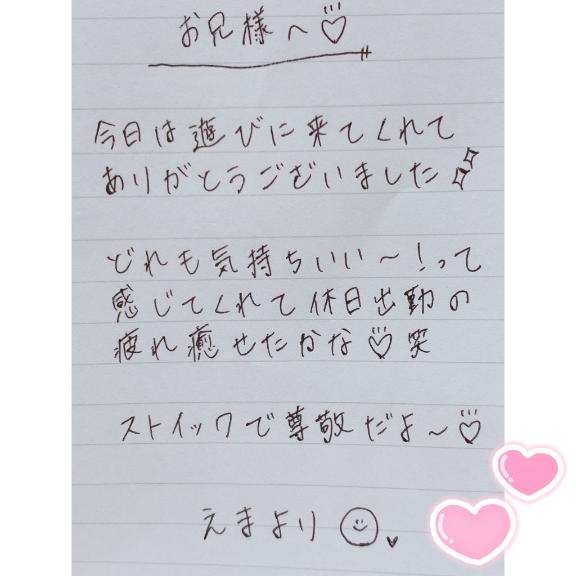 お兄様へ♡
今日は遊びに来てくれて
ありがとうございました
どれも気持ちいい〜!って
感じてくれて休日出勤の
疲れ癒せたかな♡笑
ストイックで尊敬だよ〜♡
えまより